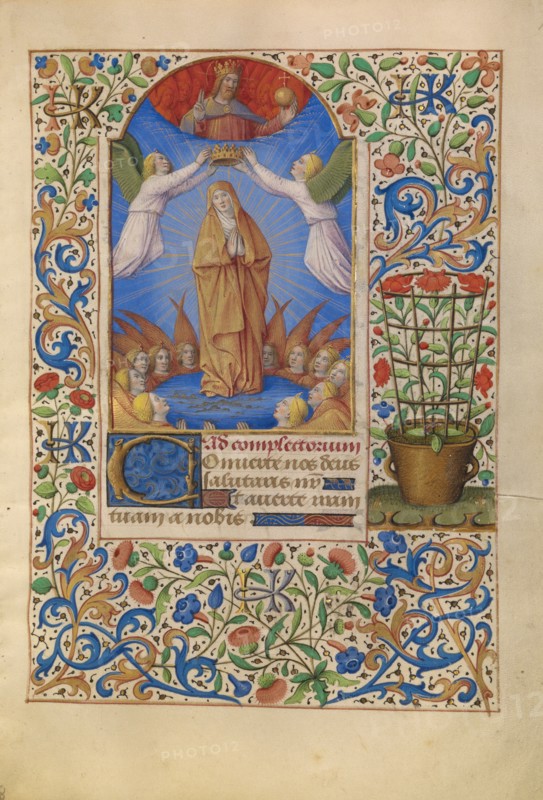 Ad complectorium
Conuerte nos deus
salutaris nr̄
Et auerte iram
tuam a nobis
PHOTO12